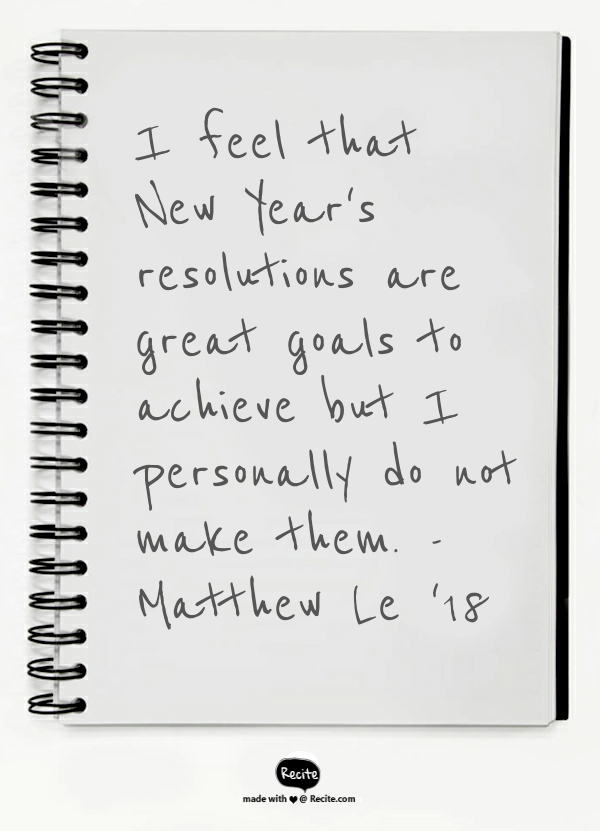 I feel that
New Year's
resolutions are
great goals to
achieve but I
personally do not
make them. -
Matthew Le '18
Recite
made with ♥ @ Recite.com